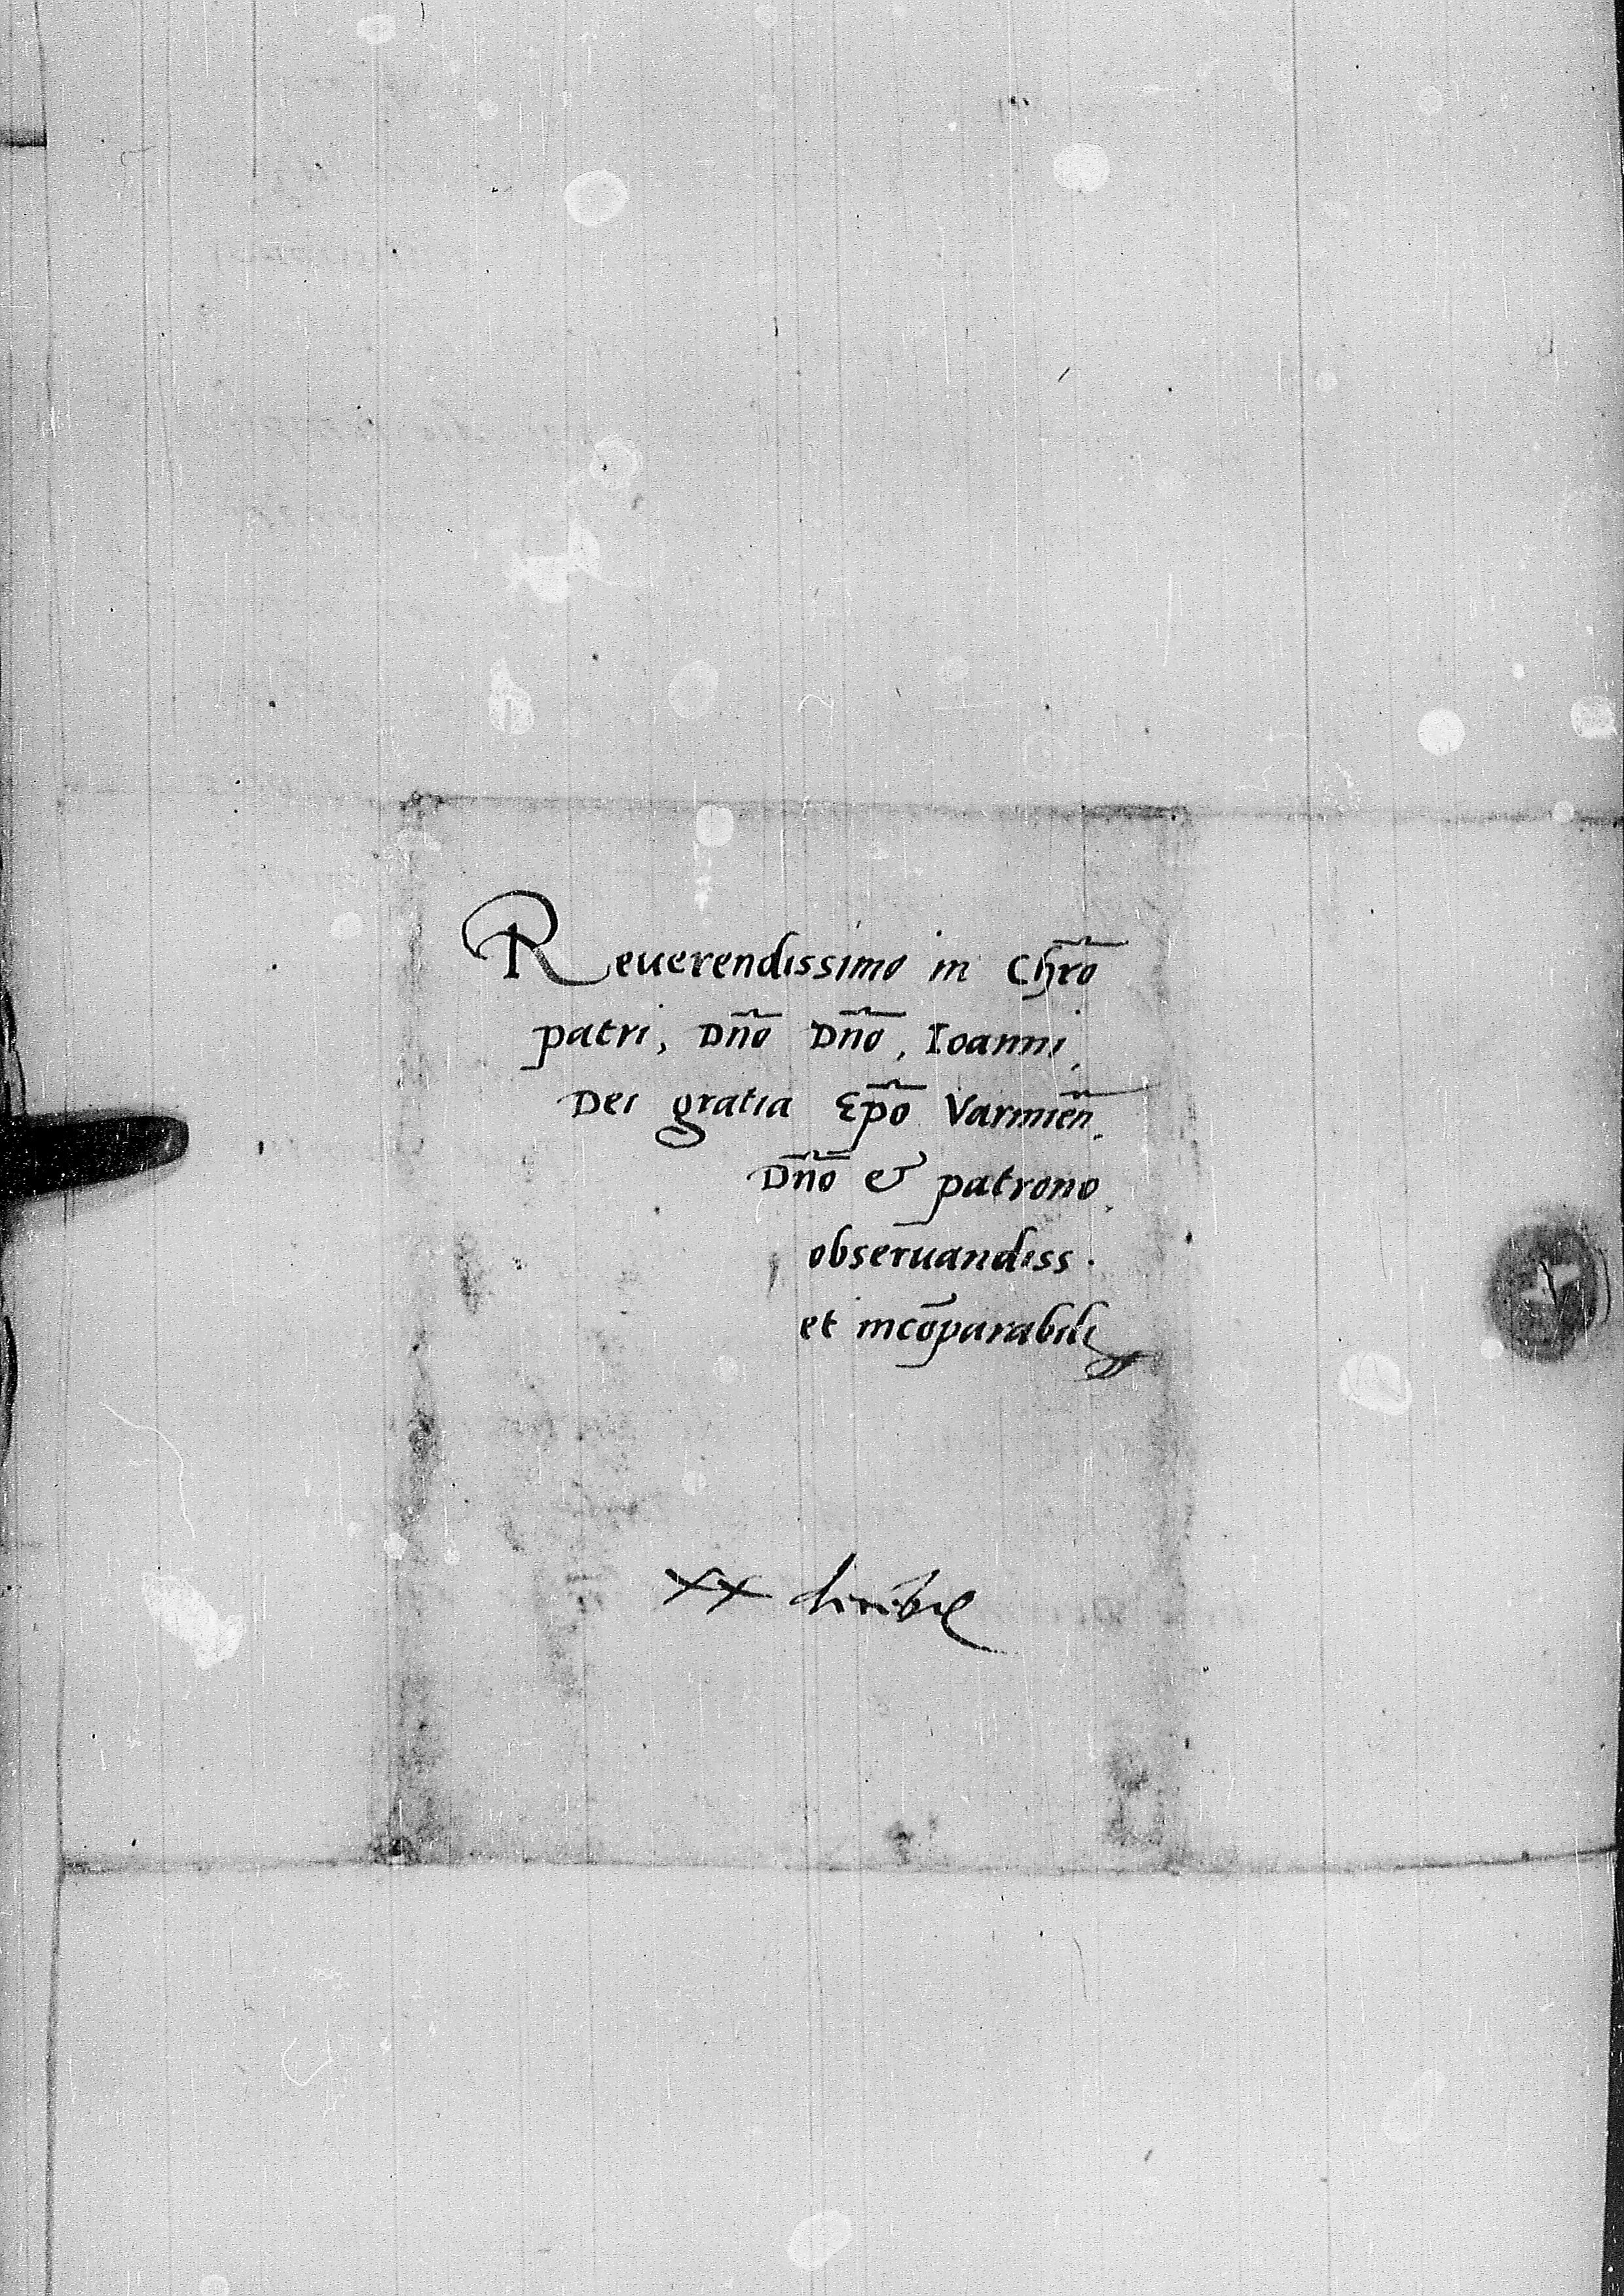 Reuerendissimo in Chr̃o
patri, Dñо Dño, Ioanni,
Dei gratia Ep̃o Varmieñ.
Dño & patrono
obseruandiss.
et incõparabili
xx